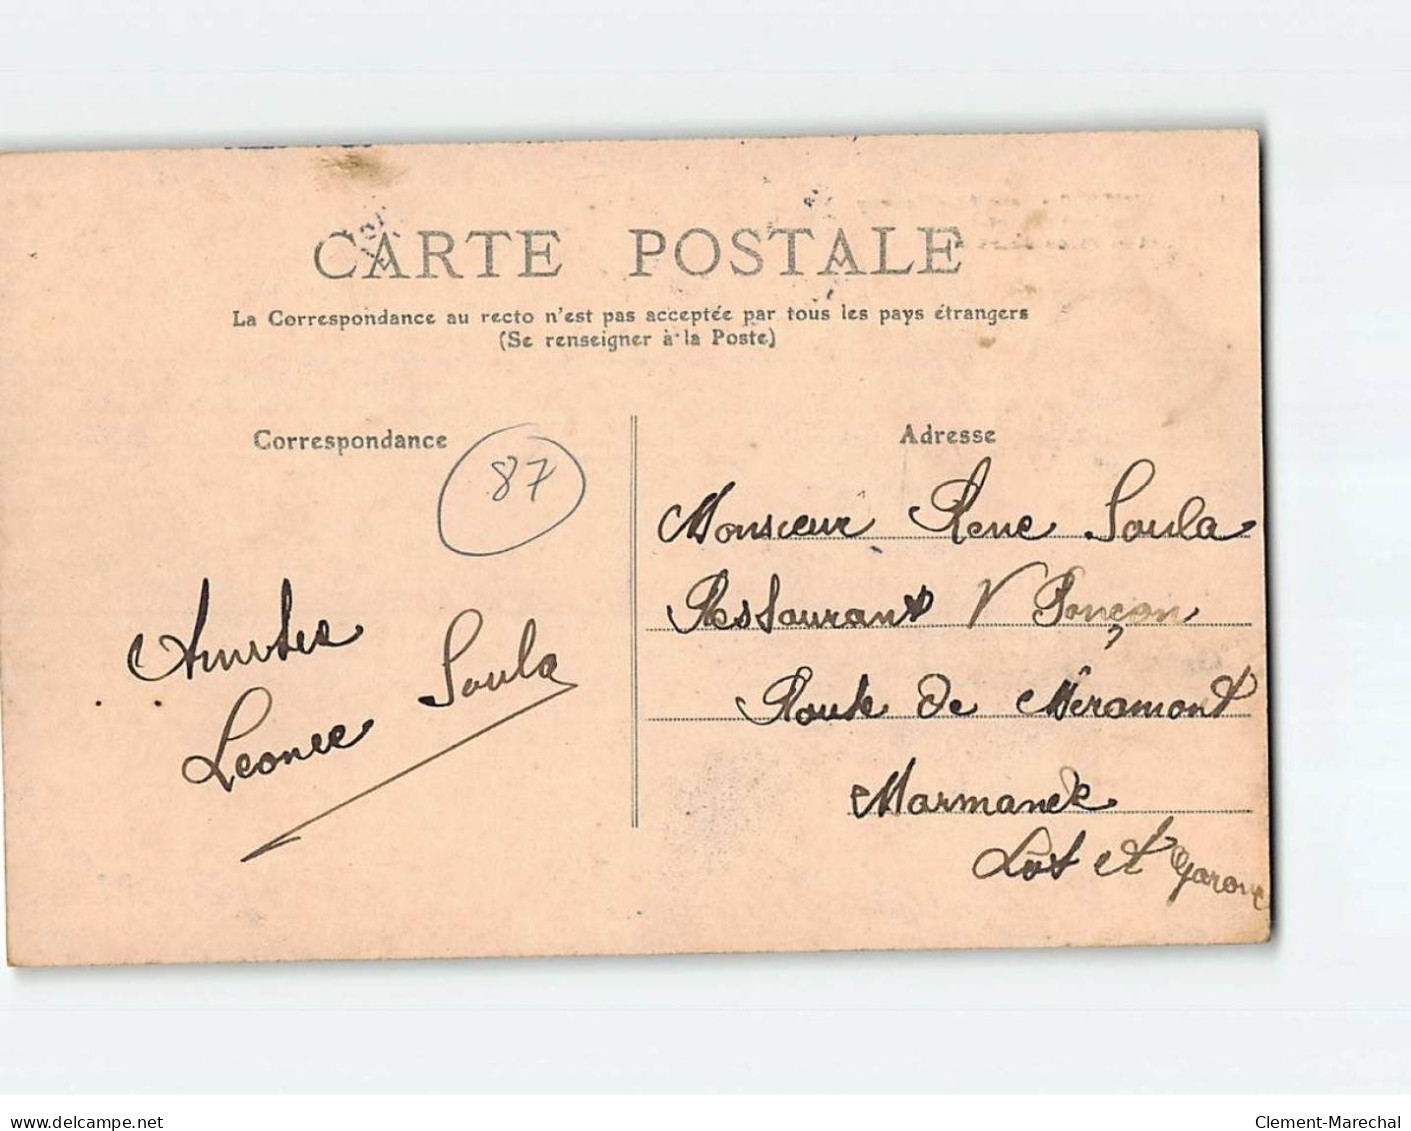 CARTE POSTALE
La Correspondance au recto n'est pas acceptée par tous les pays étrangers
(Se renseigner à la Poste)
Correspondance
87
Amities
Leonce Soula
Adresse
Monsieur Rene Soula
Restaurant V Ponçon
Route De Méramont
Marmande
Lot et Garonne
delcampe.net
Clement-Marechal